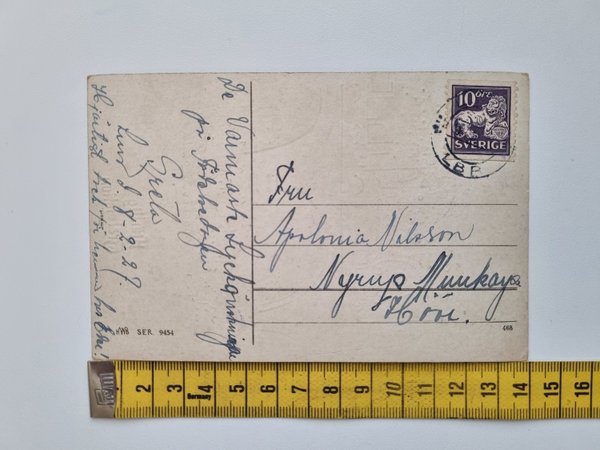 De Varmaste Lyckönskningar
på Födelsedagen
Greta
Lund d. 8-2-27.
Hjärtligt tack för
10 ÖRE
SVERIGE
LBR
Fru
Apolonia Nilsson
Nyrup Munkarp
Höör.
SER. 9454
468
1 2 3 4 5 6 7 8 9 10 11 12 13 14 15 16
Germany